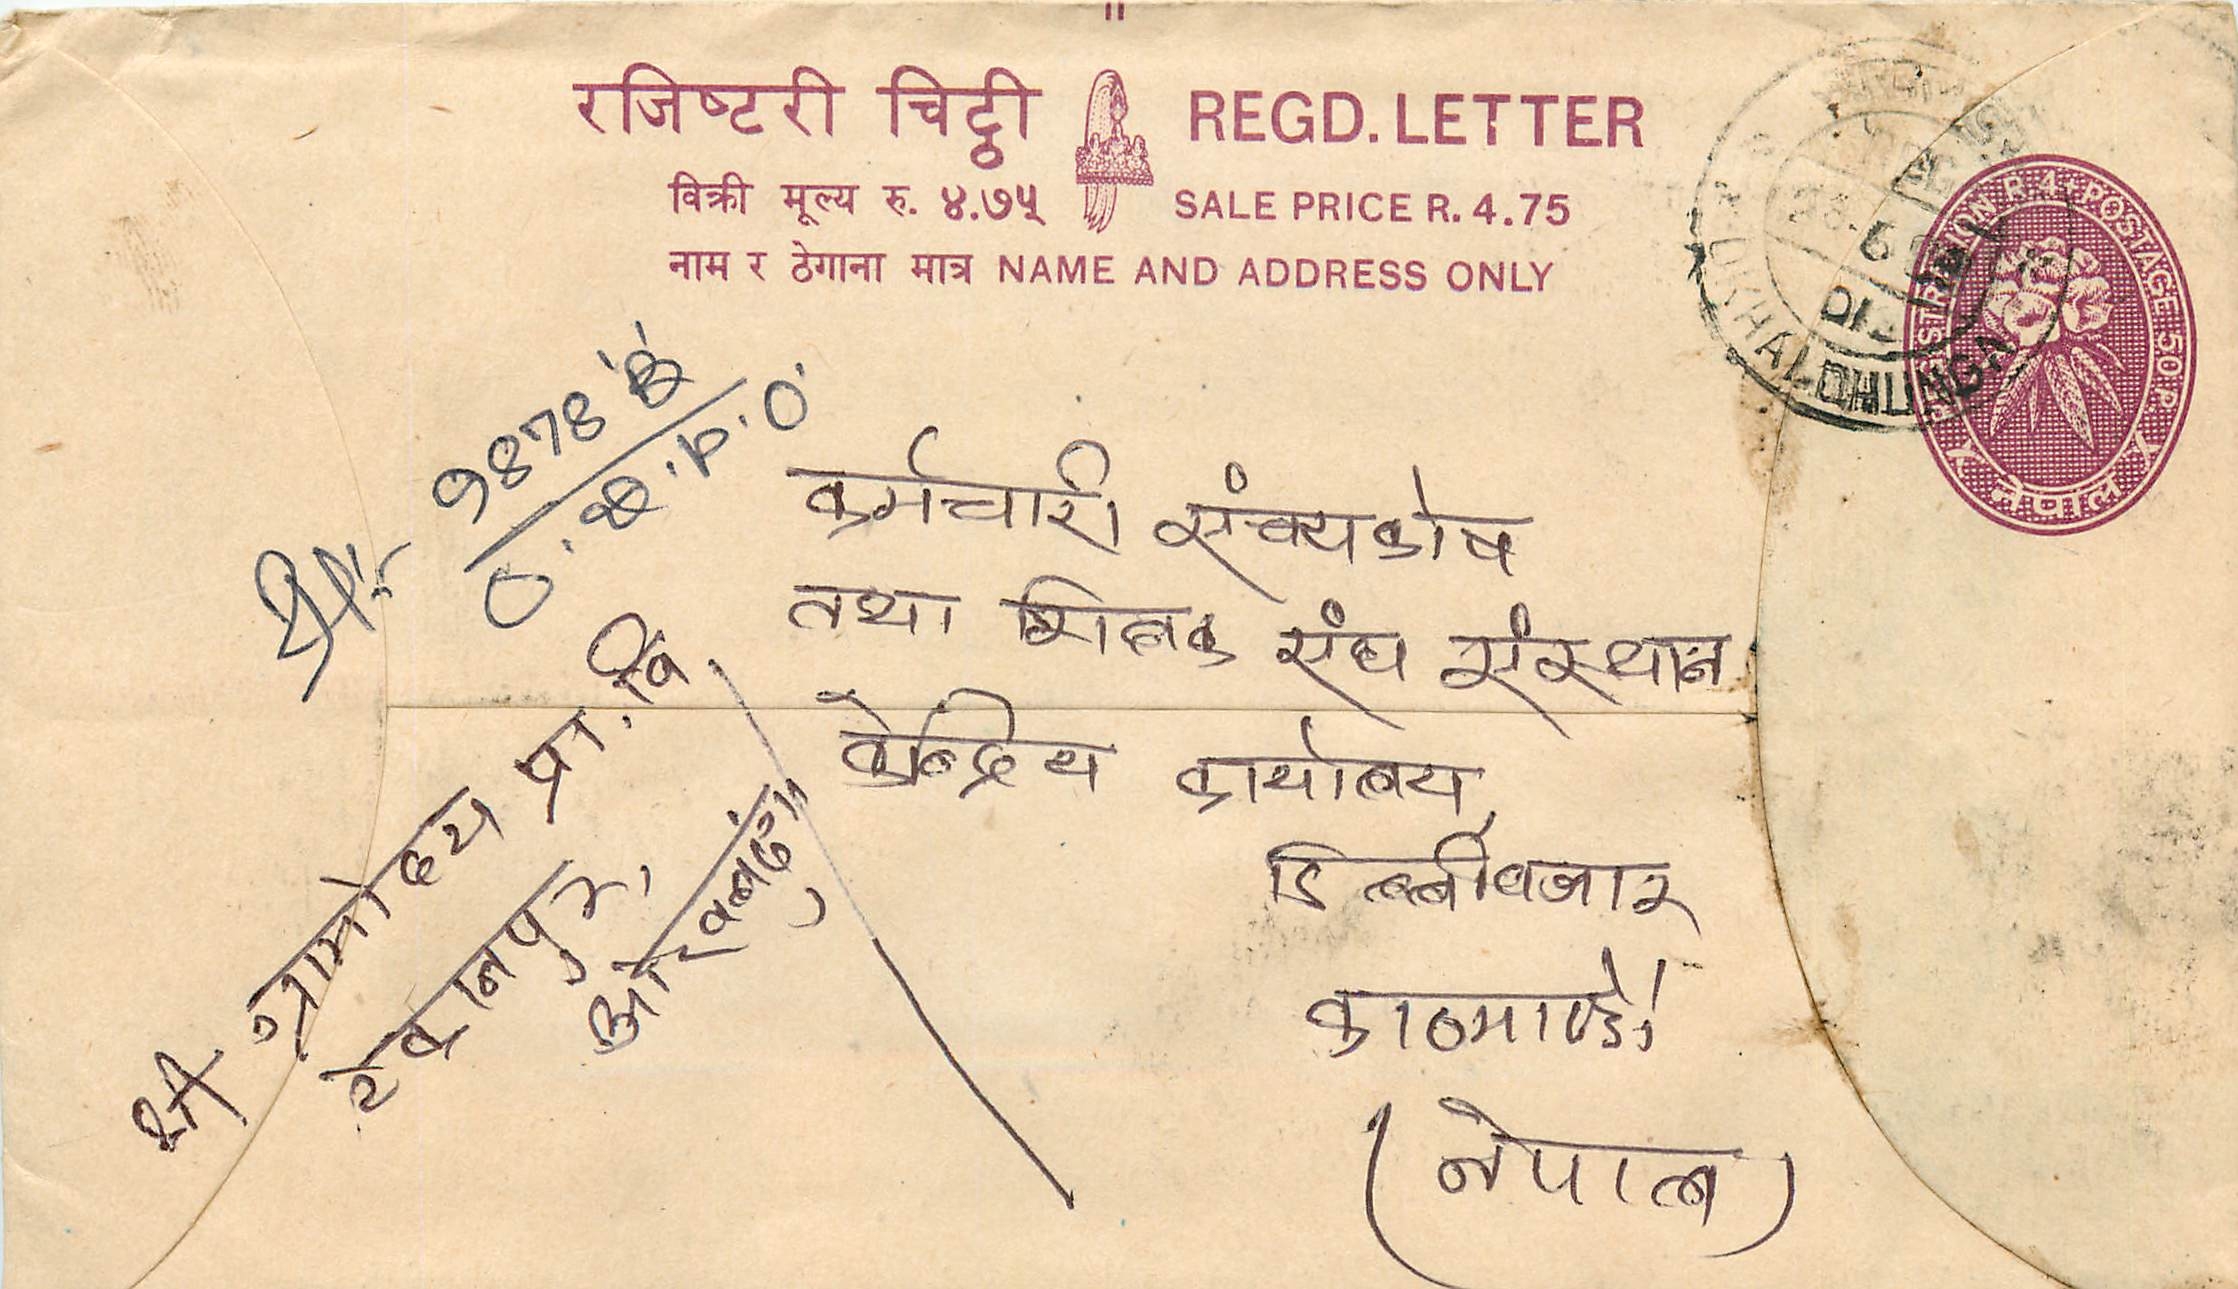 रजिष्टरी चिट्ठी REGD. LETTER
विक्री मूल्य रु. ४.७५ SALE PRICE R. 4.75
नाम र ठेगाना मात्र NAME AND ADDRESS ONLY
REGISTRATION R.4. POSTAGE 50 P.
नेपाल
OKHALDHUNGA
9878
O.D.P.O.
कर्मचारी संचयकोष
तथा शिक्षक संघ संस्थान
केन्द्रिय कार्यालय
डिल्लीबजार
काठमाण्डौ।
(नेपाल)
श्री ग्रामोदय प्रा. वि
ओखलढुंगा